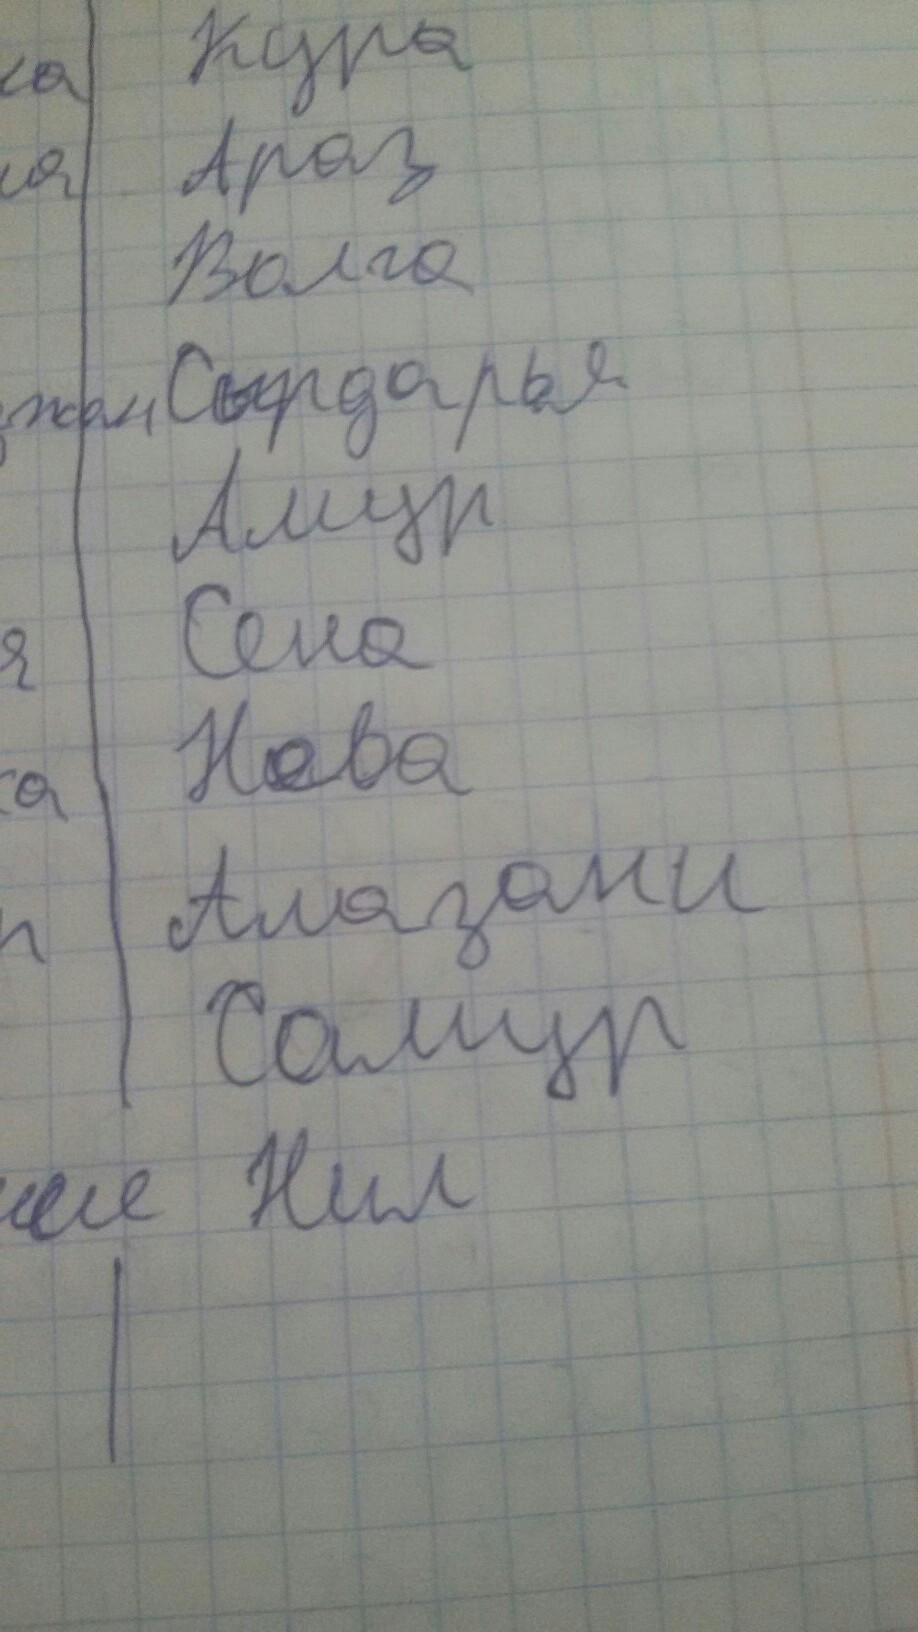 ка Кура
ка Араз
Волга
жан, Сырдарья
Амур
я Сена
ка Нева
р Амазани
Самур
ние Нил